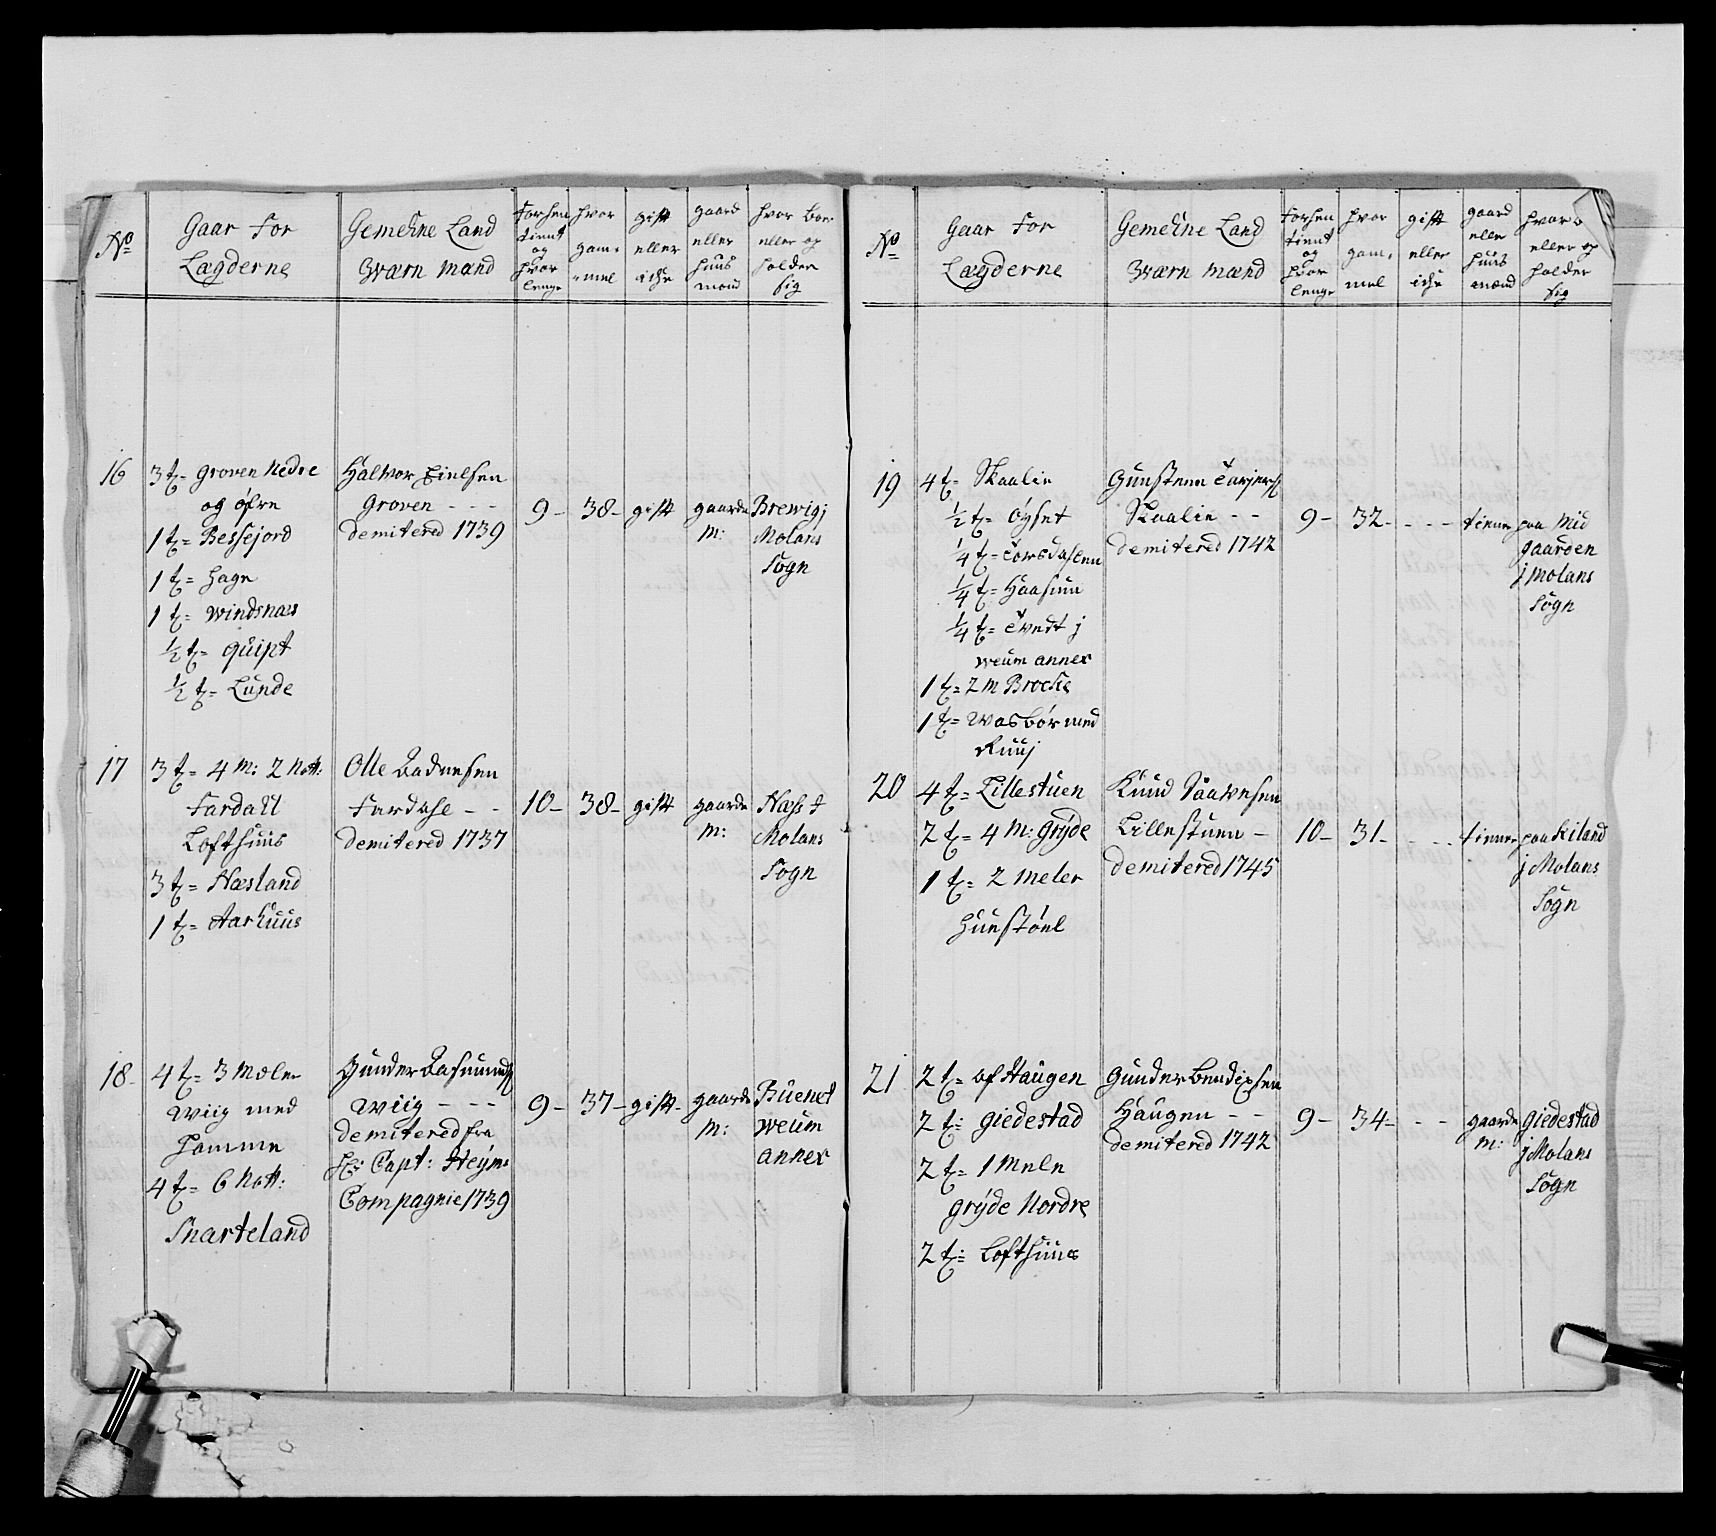 No
Gaar For
Lægderne
Gemeine Land
Wærn Mænd
Forhen
tient
og
hvor
lenge
hvor
gam-
mel
gift
eller
iche
gaard
eller
huus
mand
hvor boer
eller op
holder
sig
16
3 t= Groven Nedre
og øfre
1 t= Bessejord
1 t= Hage
1 t= Windsnæs
½ t= Quipt
½ t= Lunde
Halvor Eielsen
Groven - - -
demitered 1739
9 - 38 - gift gaarde
M:
Brewig j
Molans
Sogn
17
3 t= 4 M: 2 Nott:
Fardall
Lofthuus
3 t= Næsland
1 t= Aarhuus
Olle
Fardale - -
demitered 1737
10 - 38 - gift gaarde
M:
Næss j
Molans
Sogn
18
4 t= 3 Meler
Wiig med
Homme
4 t= 6 Nott:
Snarteland
Gunder Aasmunds
Wiig - - -
demitered fra
Hr Capt: Heyms
Compagnie 1739
9 - 37 - gift - gaarde
M:
Buenet
Weum
annex
No
Gaar For
Lægderne
Gemeine Land
Wærn Mænd
Forhen
tient
og
hvor
lenge
hvor
gam-
mel
gift
eller
iche
gaard
eller
huus
mænd
hvor
eller op
holder
sig
19
4 t= Skaalie
½ t= Øyset
¼ t= Torsdalen
¼ t=
¼ t= Tvedt j
Weum annex
1 t= 2 M Brocke
1 t= Wasbør med
Ruuj
Gunsteen Tarjers
Skaalie - -
demitered 1742
9 - 32 - - - - tiener
paa Mid
gaarden
j Molans
Sogn
20
4 t= Lillestuen
2 t= 4 M: Grÿde
1 t= 2 Meler
Hunstøel
Knud Saavesen
Lillestuen -
demitered 1745
10 - 31 - - - - tiener
paa Kiland
j Molans
Sogn
21
2 t= af Haugen
2 t= Giedestad
2 t= 1 Mele
Grÿde Nordre
2 t= Lofthuus
Gunder Bendixsen
Haugen - -
demitered 1742
9 - 34 - - - gaarde
M:
Giedestad
j Molans
Sogn